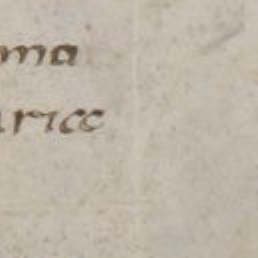 ma
aricc